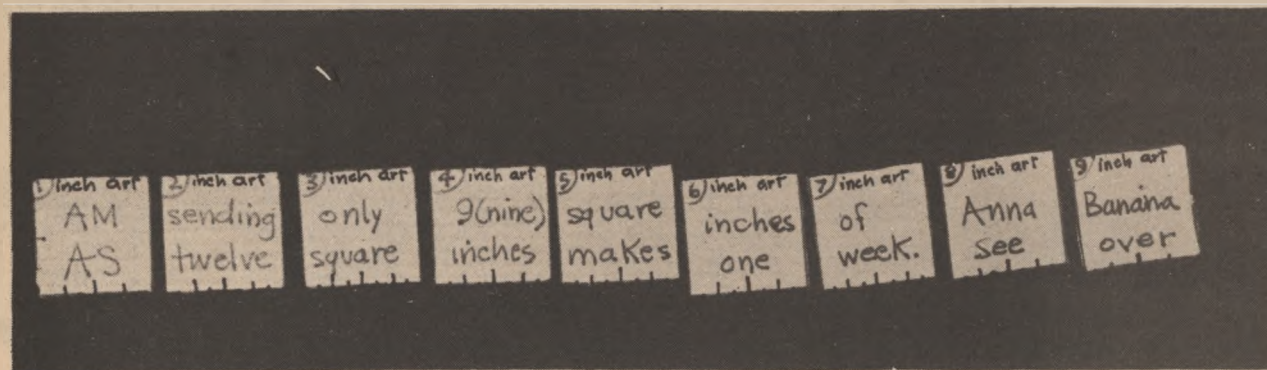 1) inch art
AM
AS
2) inch art
sending
twelve
3) inch art
only
square
4) inch art
9(nine)
inches
5) inch art
square
makes
6) inch art
inches
one
7) inch art
of
week.
8) inch art
Anna
see
9) inch art
Banana
over